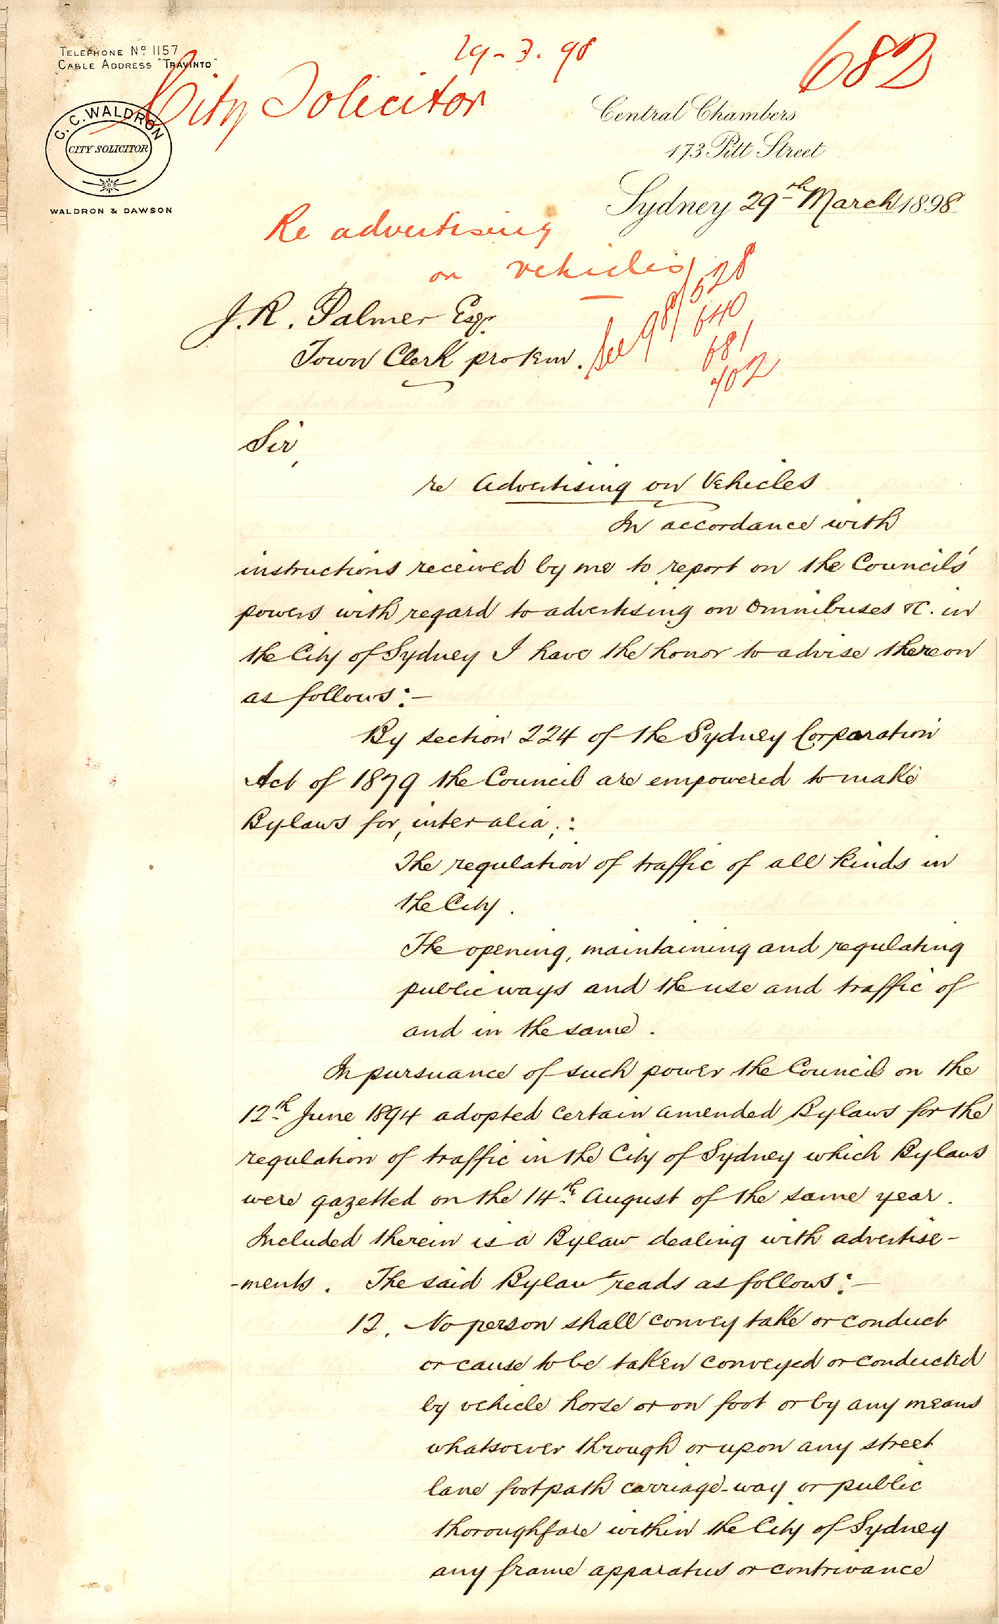 29-3.98
682
TELEPHONE No 1157
CABLE ADDRESS "TRAVINTO"
City Solicitor
C.C. WALDRON
CITY SOLICITOR
WALDRON & DAWSON
Central Chambers
173 Pitt Street
Sydney 29th March 1898
Re advertising
on vehicles
See 98/528
640
681
702
J.R. Palmer Esqr
Town Clerk pro tem.
Sir,
re Advertising on Vehicles
In accordance with
instructions received by me to report on the Council's
powers with regard to advertising on Omnibuses &c. in
the City of Sydney I have the honor to advise thereon
as follows:-
By section 224 of the Sydney Corporation
Act of 1879 the Council are empowered to make
Bylaws for, inter alia,:
The regulation of traffic of all kinds in
the City.
The opening, maintaining and regulating
public ways and the use and traffic of
and in the same.
In pursuance of such power the Council on the
12th June 1894 adopted certain amended Bylaws for the
regulation of traffic in the City of Sydney which Bylaws
were gazetted on the 14th August of the same year.
Included therein is a Bylaw dealing with advertise-
-ments. The said Bylaw reads as follows:-
12. No person shall convey take or conduct
or cause to be taken conveyed or conducted
by vehicle horse or on foot or by any means
whatsoever through or upon any street
lane footpath carriage-way or public
thoroughfare within the City of Sydney
any frame apparatus or contrivance